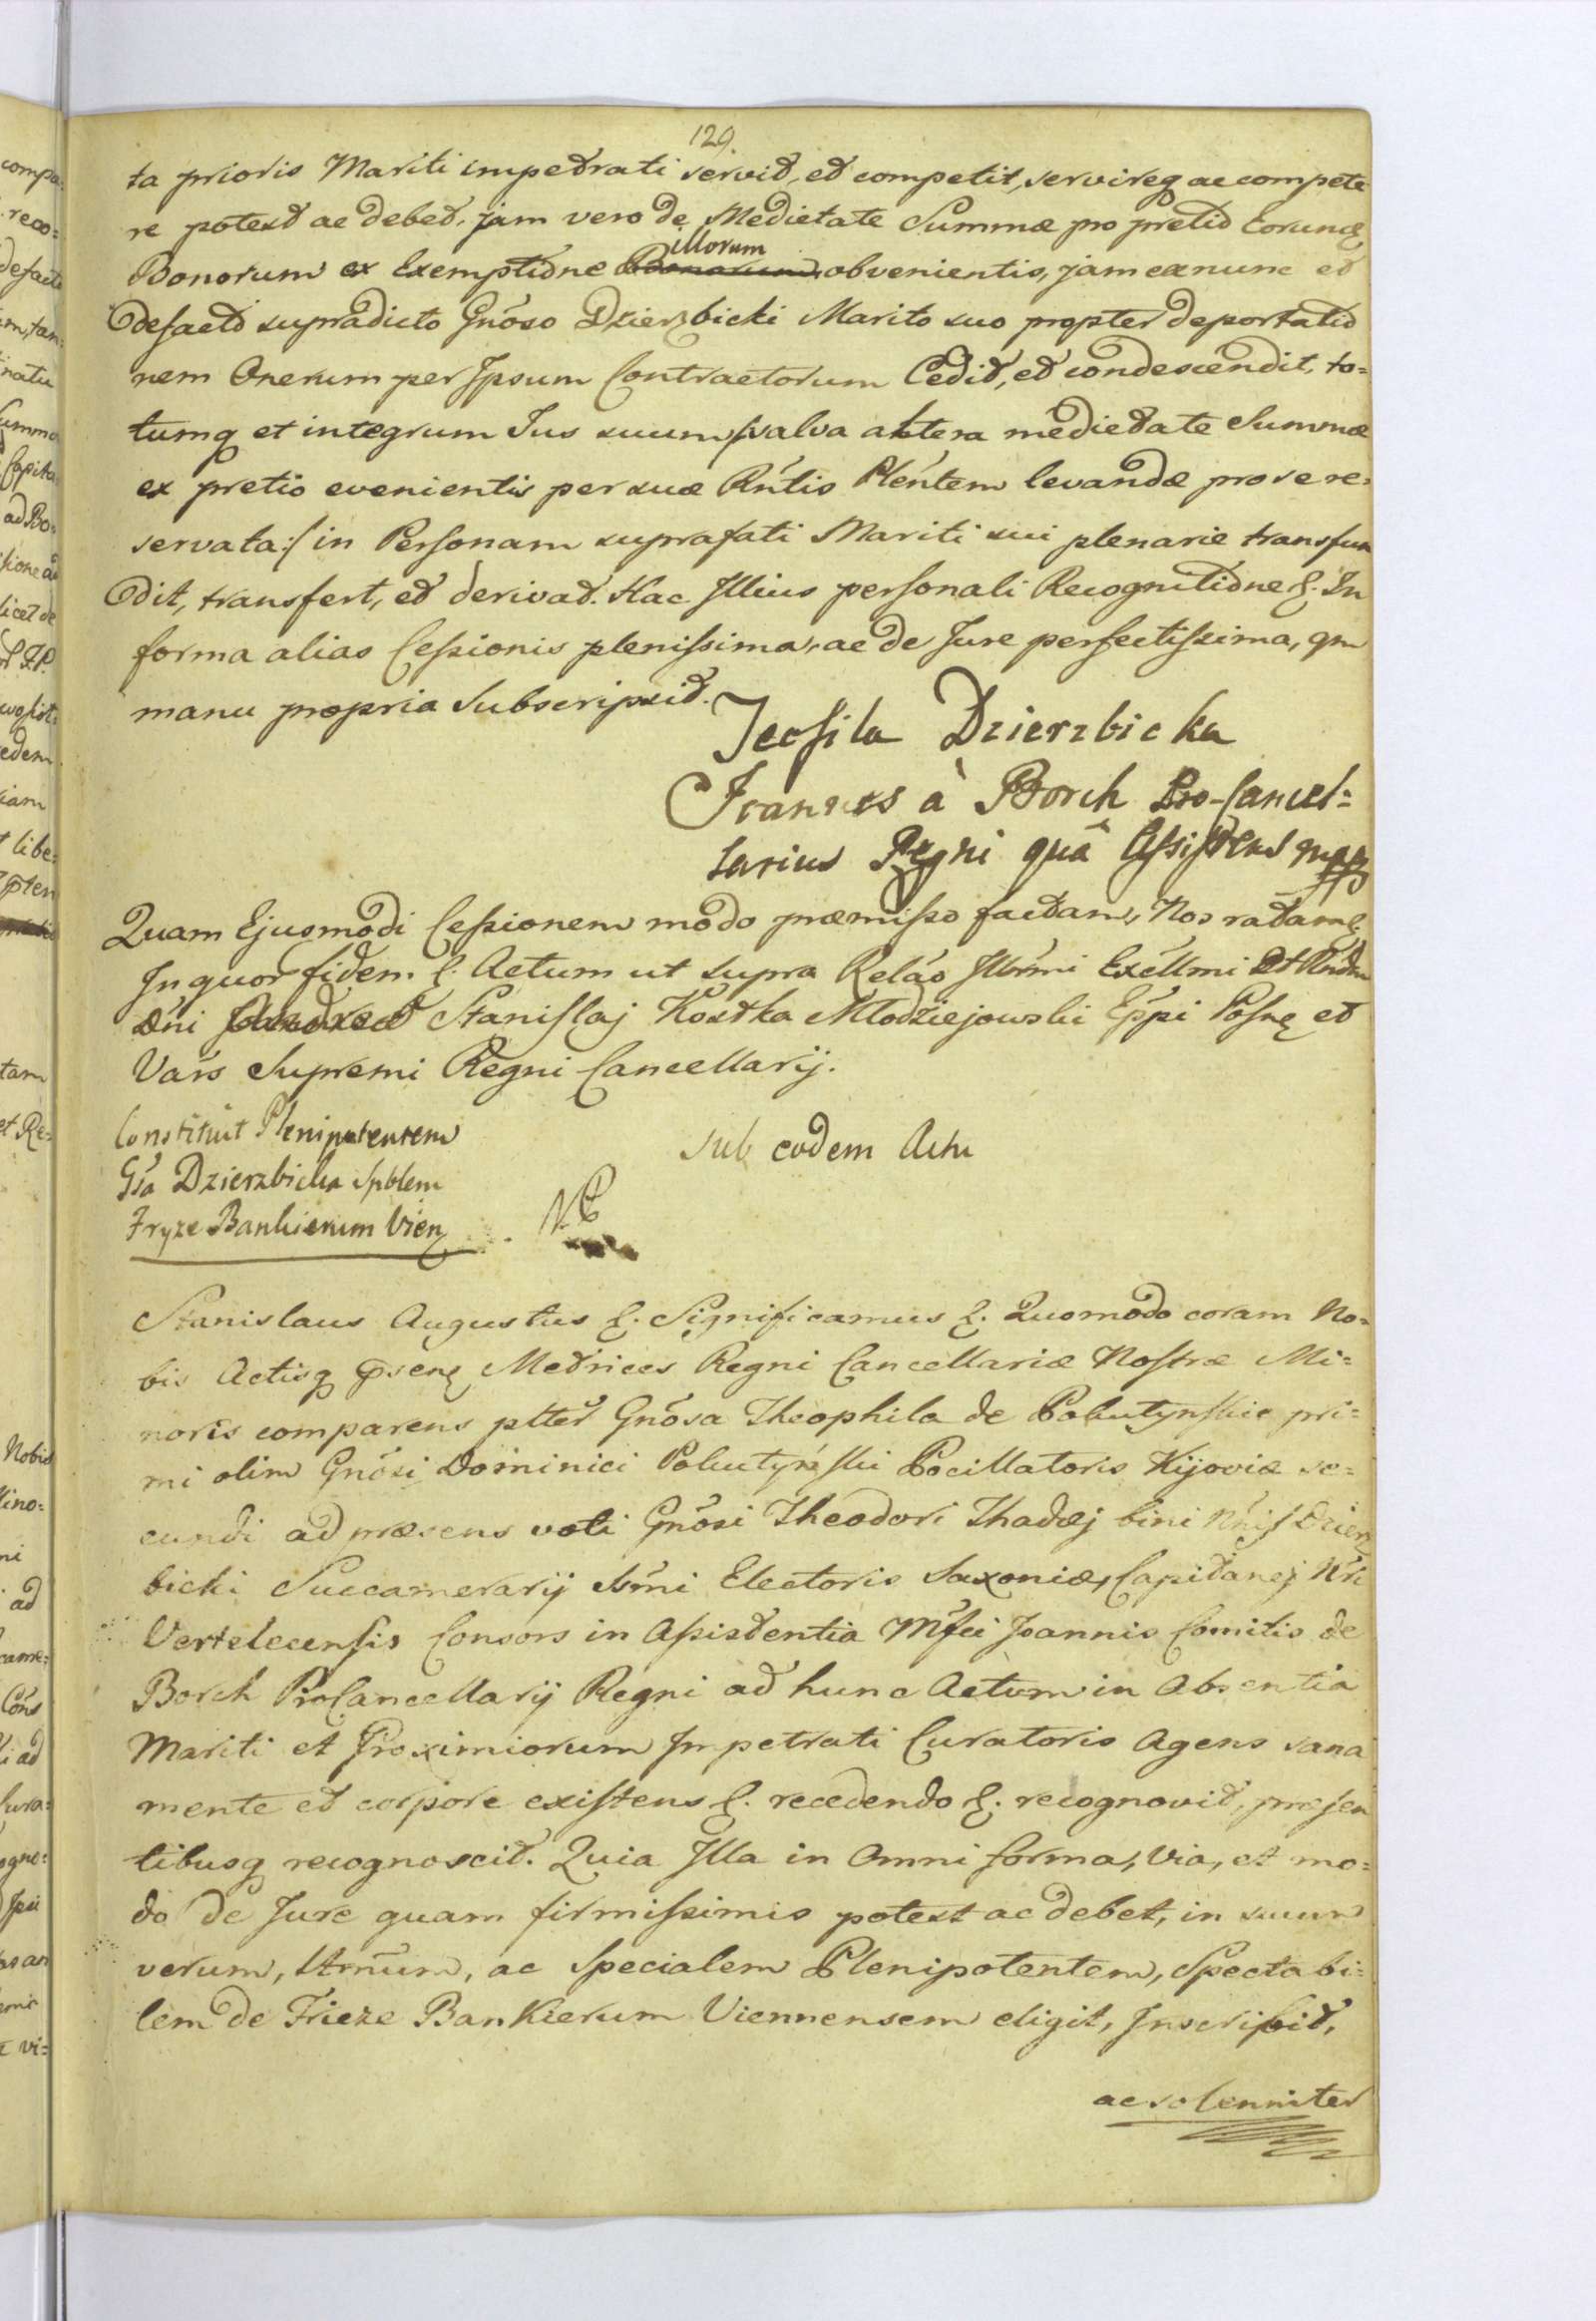 129.
ta prioris Mariti impetrati servit, et competit, servireq ac compete
re potest ac debet. jam vero de Medietate Summæ pro pretio Eorunq
Bonorum ex Exemptione illorum obvenientis, jam ex nunc et
defacto supradicto Gnõso Dzierzbicki Marito suo propter deportatio
nem Onerum per Ipsum Contractorum Cedit, et condescendit, to=
tumq et integrum Jus suum /:salva altera medietate Summæ
ex pretio evenientis per suæ Rñtis Plentem levandæ pro se re=
servata:/ in Personam suprafati Mariti sui plenarie transfun
dit, transfert, et derivat. Hac Illius personali Recognitione &. In
forma alias Cessionis plenissima, ac de Jure perfectissima, qm
manu propria Subscripsit.
Teofila Dzierzbicka
Joannes à Borch Pro-Cancel=
larius Regni quâ Assistens mpp
Quam Ejusmodi Cessionem modo præmisso factam, Nos ratam &
In quor fidem &. Actum ut supra Relão Illrmi Exellmi et Rndm
Dni Stanislaj Kostka Młodziejowski Eppi Posnę et
Vars Supremi Regni Cancellarij.
Constituit Plenipotentem
Gsa Dzierzbicka Spblem
Fryze Bankierum Vien
sub eodem Actu
NB
Stanislaus Augustus &. Significamus &. Quomodo coram No=
bis Actisq psenę Metrices Regni Cancellariæ Nostræ Mi=
noris comparens pltter Gnõsa Theophila de Pobutynskie pri=
mi olim Gnõsi Dominici Pobutyński Pocillatoris Kijoviæ se=
cundi ad præsens voti Gnõsi Theodori Thadæj bini Nñis Dzierz
bicki Succamerarij Ssmi Electoris Saxoniæ, Capitanej Nri
Vertelecensis Consors in Assistentia Mfci Joannis Comitis de
Borch ProCancellarij Regni ad hunc Actum in Absentia
Mariti et Proximiorum Impetrati Curatoris Agens sana
mente et corpore existens &. recedendo &. recognovit, præsen
tibusq recognoscit. Quia Illa in Omni forma, via, et mo=
do de Jure quam firmissimis potest ac debet, in suum
verum, ltmũm, ac Specialem Plenipotentem, Spectabi=
lem de Frieze Bankierum Viennensem eligit, Inscribit,
ac solenniter